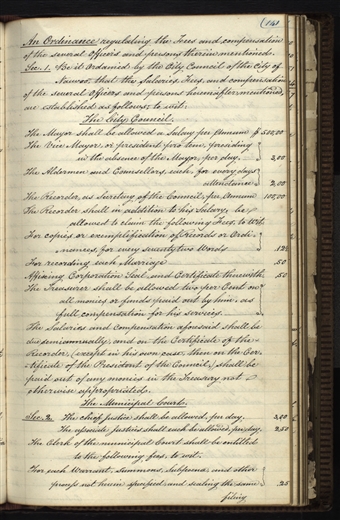 (141)
An Ordinance regulating the Fees and compensation
of the several Officers and persons therein mentioned.
Sec. 1. Be it Ordained by the City Council of the City of
Nauvoo, that the Salaries, Fees, and compensation
of the several Officers and persons hereinafter mentioned,
are established as follows, to wit.
The City Council.
The Mayor shall be allowed a Salary per Annum $ 500,00
The Vice Mayor, or president pro tem, presiding
in the absence of the Mayor, per day. 3,00
The Aldermen and Counsellors, each, for every days
attendance 2,00
The Recorder, as Secretary of the Council, per Annum 100,00
The Recorder shall in addition to his Salary, be
allowed to claim the following Fees, to Wit.
For copies or exemplification of Records or Ordi-
nances, for every seventy two Words 12½
For recording each Marriage 50
Affixing Corporation Seal and Certificate therewith 50
The Treasurer shall be allowed two per Cent on
all monies or funds paid out by him, as
full compensation for his services.
The Salaries and Compensation aforesaid shall be
due semiannually, and on the Certificate of the
Recorder, (except in his own case, then on the Cer-
tificate of the President of the Council,) shall be
paid out of any monies in the Treasury not
otherwise appropriated.
The Municipal Court.
Sec. 2. The chief justice shall be allowed, per day. 3,00
The associate justices shall each be allowed, per day. 2,50
The Clerk of the municipal Court shall be entitled
to the following fees, to wit.
For each Warrant, Summons, Subpoena and other
process not herein specified and sealing the same 25
filing